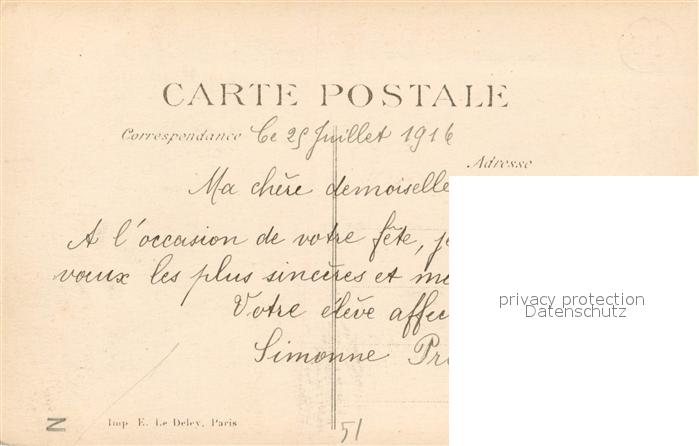 CARTE POSTALE
Correspondance Ce 25 Juillet 1916
Adresse
Ma chère demoiselle
A l'occasion de votre fête, je
vœux les plus sincères et me
Votre élève affec
Simonne Pr
privacy protection
Datenschutz
Imp E. Le Deley, Paris
51
N